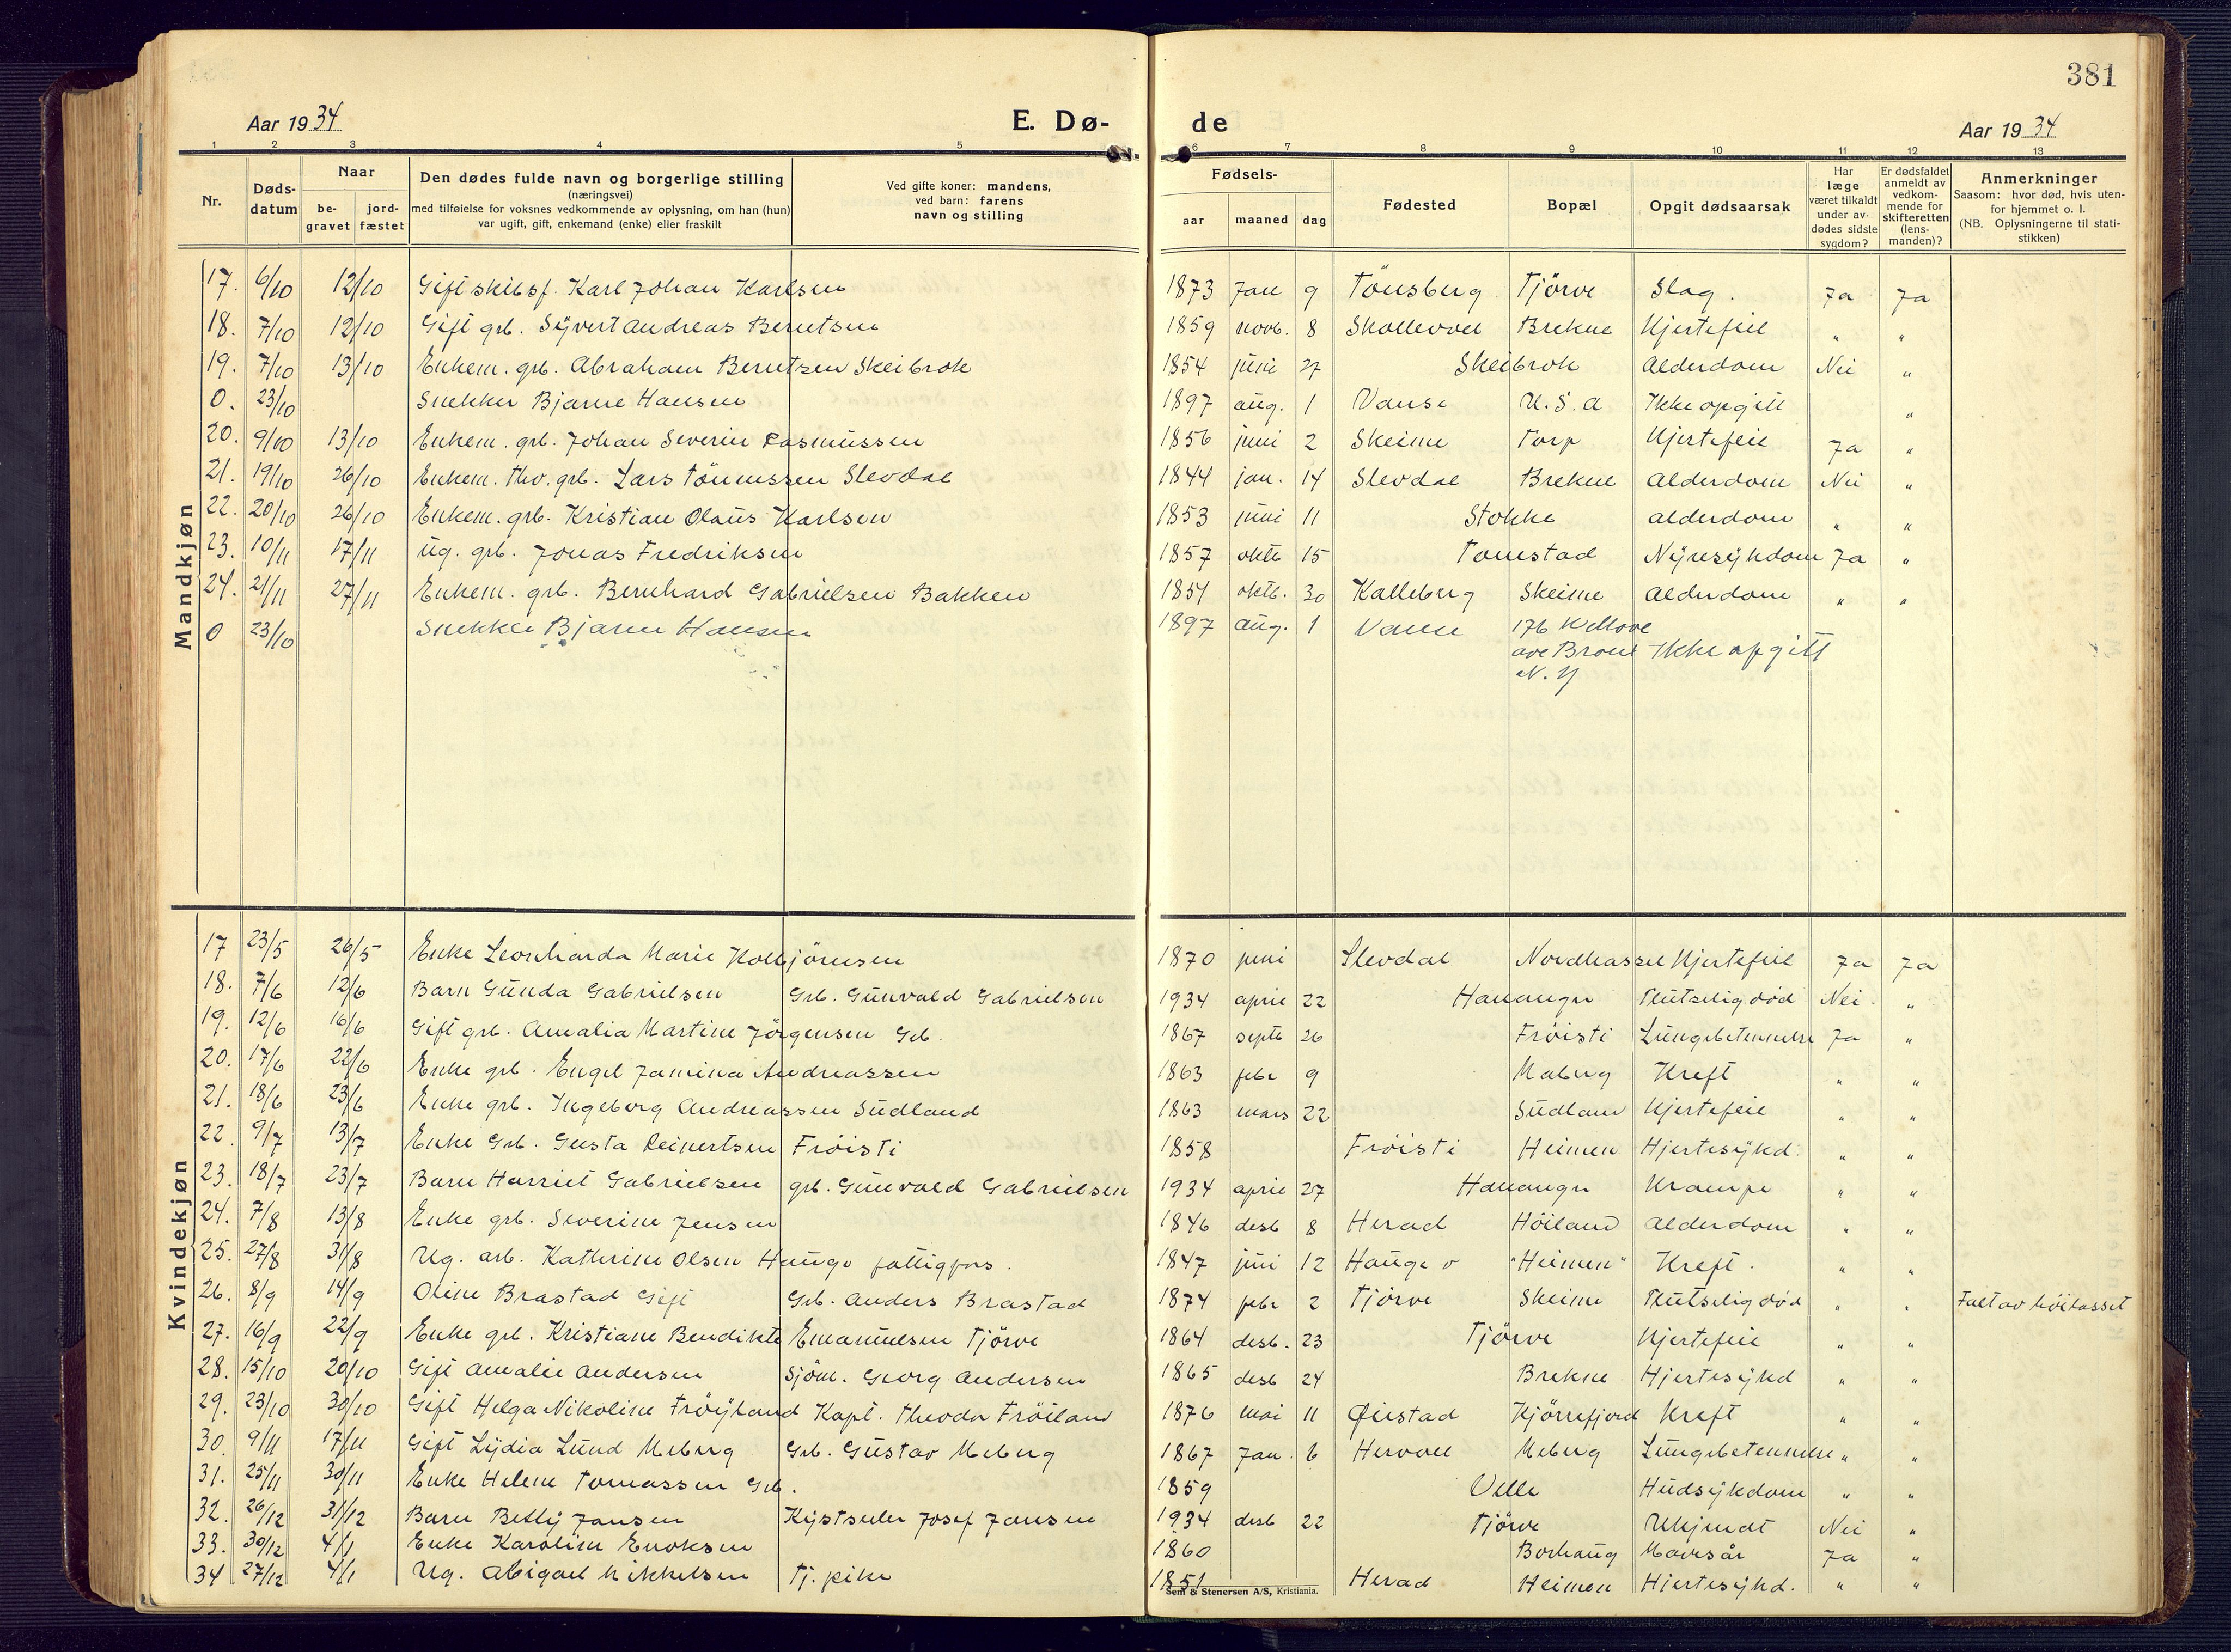 381
Aar 1934 E. Dø- de Aar 1934
1 2 3 4 5 6 7 8 9 10 11 12 13
Nr. Døds-datum Naar be-gravet jord-fæstet Den dødes fulde navn og borgerlige stilling (næringsvei) med tilføielse for voksnes vedkommende av oplysning, om han (hun) var ugift, gift, enkemand (enke) eller fraskilt Ved gifte koner: mandens, ved barn: farens navn og stilling Fødsels- aar maaned dag Fødested Bopæl Opgit dødsaarsak Har læge været tilkaldt under av-dødes sidste sygdom? Er dødsfaldet anmeldt av vedkom-mende for skifteretten (lens-manden)? Anmerkninger Saasom: hvor død, hvis uten-for hjemmet o. l. (NB. Oplysningerne til stati-stikken)
Mandkjøn
17. 6/10 12/10 Gift skibsf. Karl Johan Karlsen 1873 Jan 9 Tönsberg Tjörve Slag. Ja Ja
18. 7/10 12/10 Gift grb. Syvert Andreas Berntsen 1859 novb. 8 Skollevol Brekne Hjertefeil " "
19. 7/10 13/10 Enkem. grb. Abraham Berntsen Skeibrok 1854 juni 27 Skeibrok Alderdom Nei "
0. 23/10 Snekker Bjarne Hansen 1897 aug. 1 Vanse U.S.A Ikke opgitt "
20. 9/10 13/10 Enkem. grb. Johan Severin Rasmussen 1856 juni 2 Skeime Torp Hjertefeil Ja "
21. 19/10 26/10 Enkem. thv. grb. Lars Tönnessen Slevdal 1844 jan. 14 Slevdal Brekne Alderdom Nei "
22. 20/10 26/10 Enkem. grb. Kristian Olaus Karlsen 1853 juni 11 Stokke alderdom " "
23. 10/11 17/11 ug. grb. Jonas Fredriksen 1857 oktb 15 Tomstad Nyresykdom Ja "
24. 21/11 27/11 Enkem. grb. Bernhard Gabrielsen Bakken 1854 oktb. 30 Kalleberg Skeime Alderdom " "
0 23/10 Snekker Bjarne Hansen 1897 aug. 1 Vanse 176
ave Ikke opgitt
N. Y
Kvindekjøn
17 23/5 26/5 Enke Leonharda Marie Kolbjörnsen 1870 juni Slevdal Nordhassel Hjertefeil Ja Ja
18. 7/6 12/6 Barn Gunda Gabrielsen Grb. Gunvald Gabrielsen 1934 april 22 Hananger Plutselig död Nei "
19. 12/6 16/6 Gift grb. Amalia Martine Jörgensen Grb. 1867 septb 26 Fröisti Lungebetennelse Ja "
20. 17/6 22/6 Enke grb. Engel Jamina Andreassen 1863 febr 9 Maberg Kreft " "
21. 18/6 23/6 Enke grb. Ingeborg Andreassen Sudland 1863 mars 22 Sudland Hjertefeil " "
22. 9/7 13/7 Enke Grb. Gusta Reinertsen Fröisti 1858 Fröisti Heimen Hjertesykd. " "
23. 18/7 23/7 Barn Harriet Gabrielsen grb. Gunvald Gabrielsen 1934 april 27 Hananger Krampe " "
24. 7/8 13/8 Enke grb. Severine Jensen 1846 desb 8 Herad Höiland Alderdom " "
25. 27/8 31/8 Ug. arb. Kathrine Olsen Hauge fattigfors. 1847 juni 12 Hauge "Heimen" Kreft. " "
26. 8/9 14/9 Oline Brastad Gift Grb. Anders Brastad 1874 febr 2 Tjörve Skeime Plutselig död " " Falt av höilasset
27. 16/9 22/9 Enke grb. Kristiane Bendikte Emanuelsen Tjörve 1864 desb. 23 Tjörve Hjertefeil " "
28. 15/10 20/10 Gift Amalie Andersen Sjöm. Georg Andersen 1865 desb 24 Brekne Hjertesykd " "
29. 23/10 30/10 Gift Helga Nikoline Fröyland Kapt. Theodor Fröiland 1876 mai 11 Øiestad Kjörrefjord Kreft " "
30. 9/11 17/11 Gift Lydia Lund Meberg Grb. Gustav Meberg 1867 Jan. 6 Hervoll Meberg Lungebetennelse " "
31. 25/11 30/11 Enke Helene Tomassen Grb. 1859 Velle Hudsykdom " "
32. 26/12 31/12 Barn Betty Jansen Josef Jansen 1934 desb 22 Tjörve Ukjendt Nei "
33. 30/12 4/1 Enke Karoline Enoksen 1860 Borhaug Mavesår Ja "
34 27/12 4/1 Ug. Abigael Mikkelsen Tj. pike 1851 Herad Heimen Hjertesykd. " "
Sem & Stenersen A/S, Kristiania.